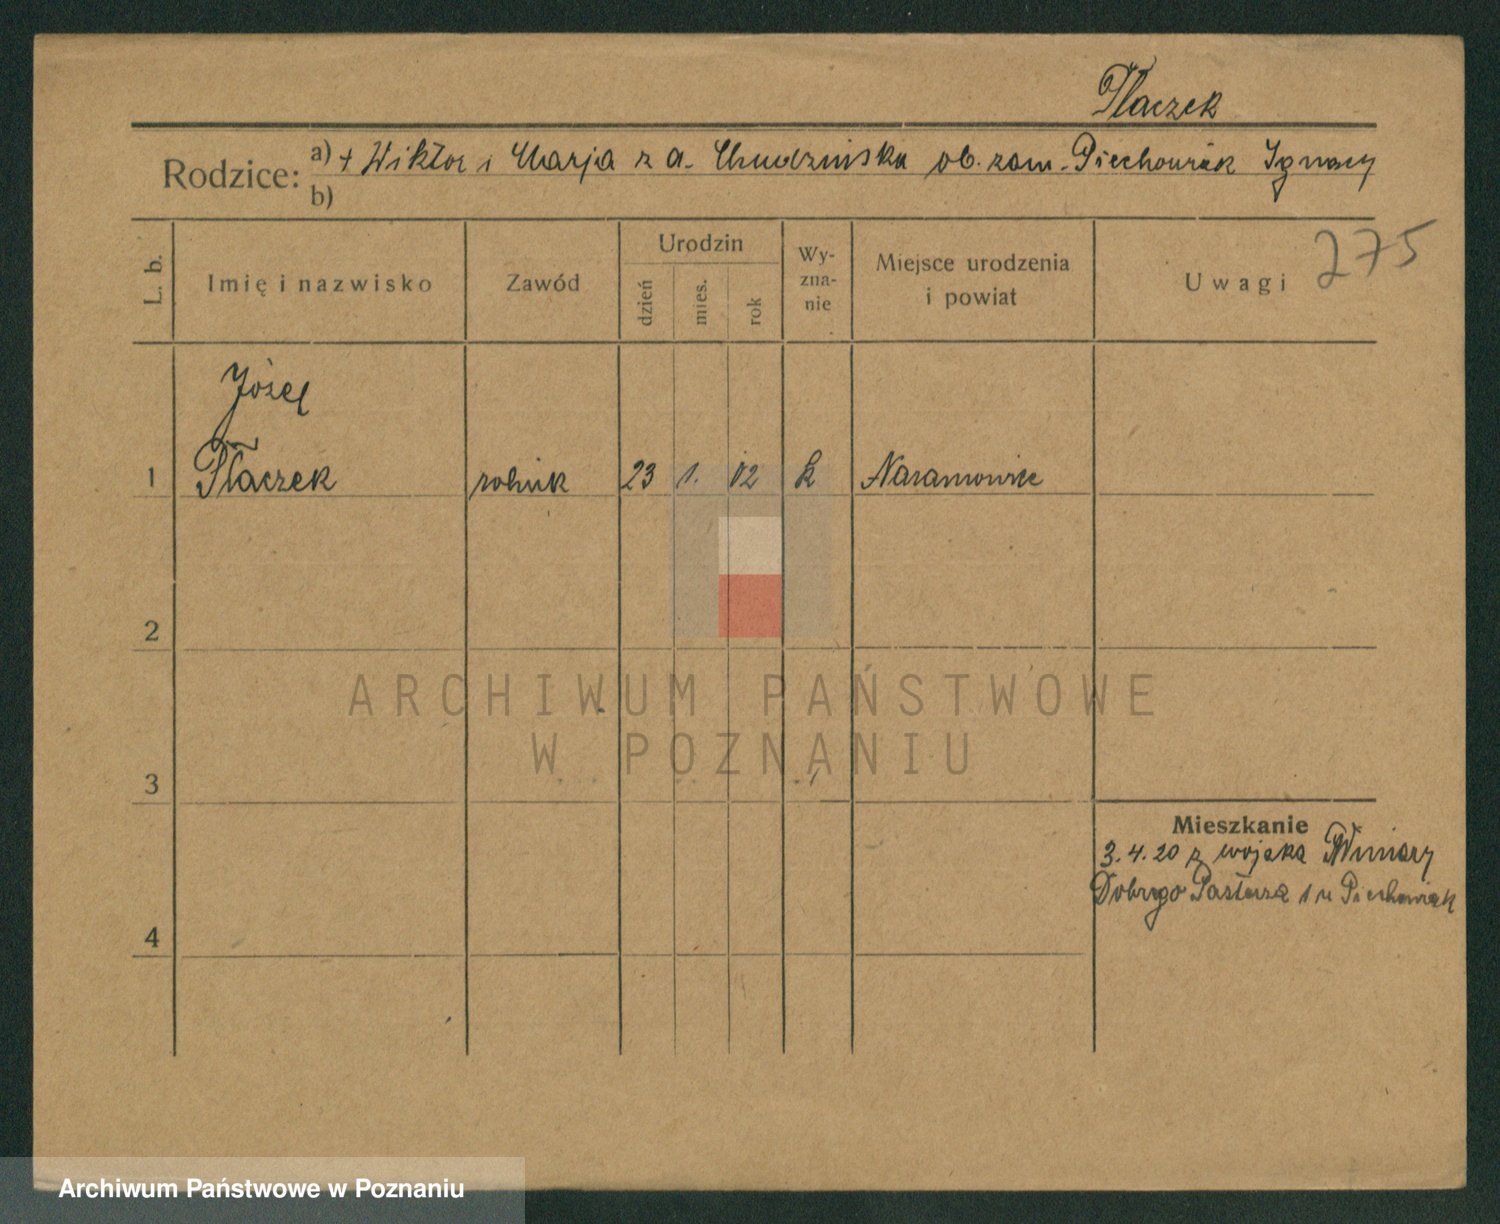 Placzek
Rodzice: a) + Wiktor i Marja z d. Chudzinska ob. zam. Piechowiak Ignacy
b)
L. b.
Imię i nazwisko
Zawód
Urodzin
dzień
mies.
rok
Wy-
zna-
nie
Miejsce urodzenia
i powiat
Uwagi
275
Józef
1 Placzek rolnik 23 1. 02 k Naramowice
2
3
4
Mieszkanie
3.4.20 z wojska Winiary
Dobrego Pasterza 1 u Piechowiak
ARCHIWUM PAŃSTWOWE
W POZNANIU
Archiwum Państwowe w Poznaniu